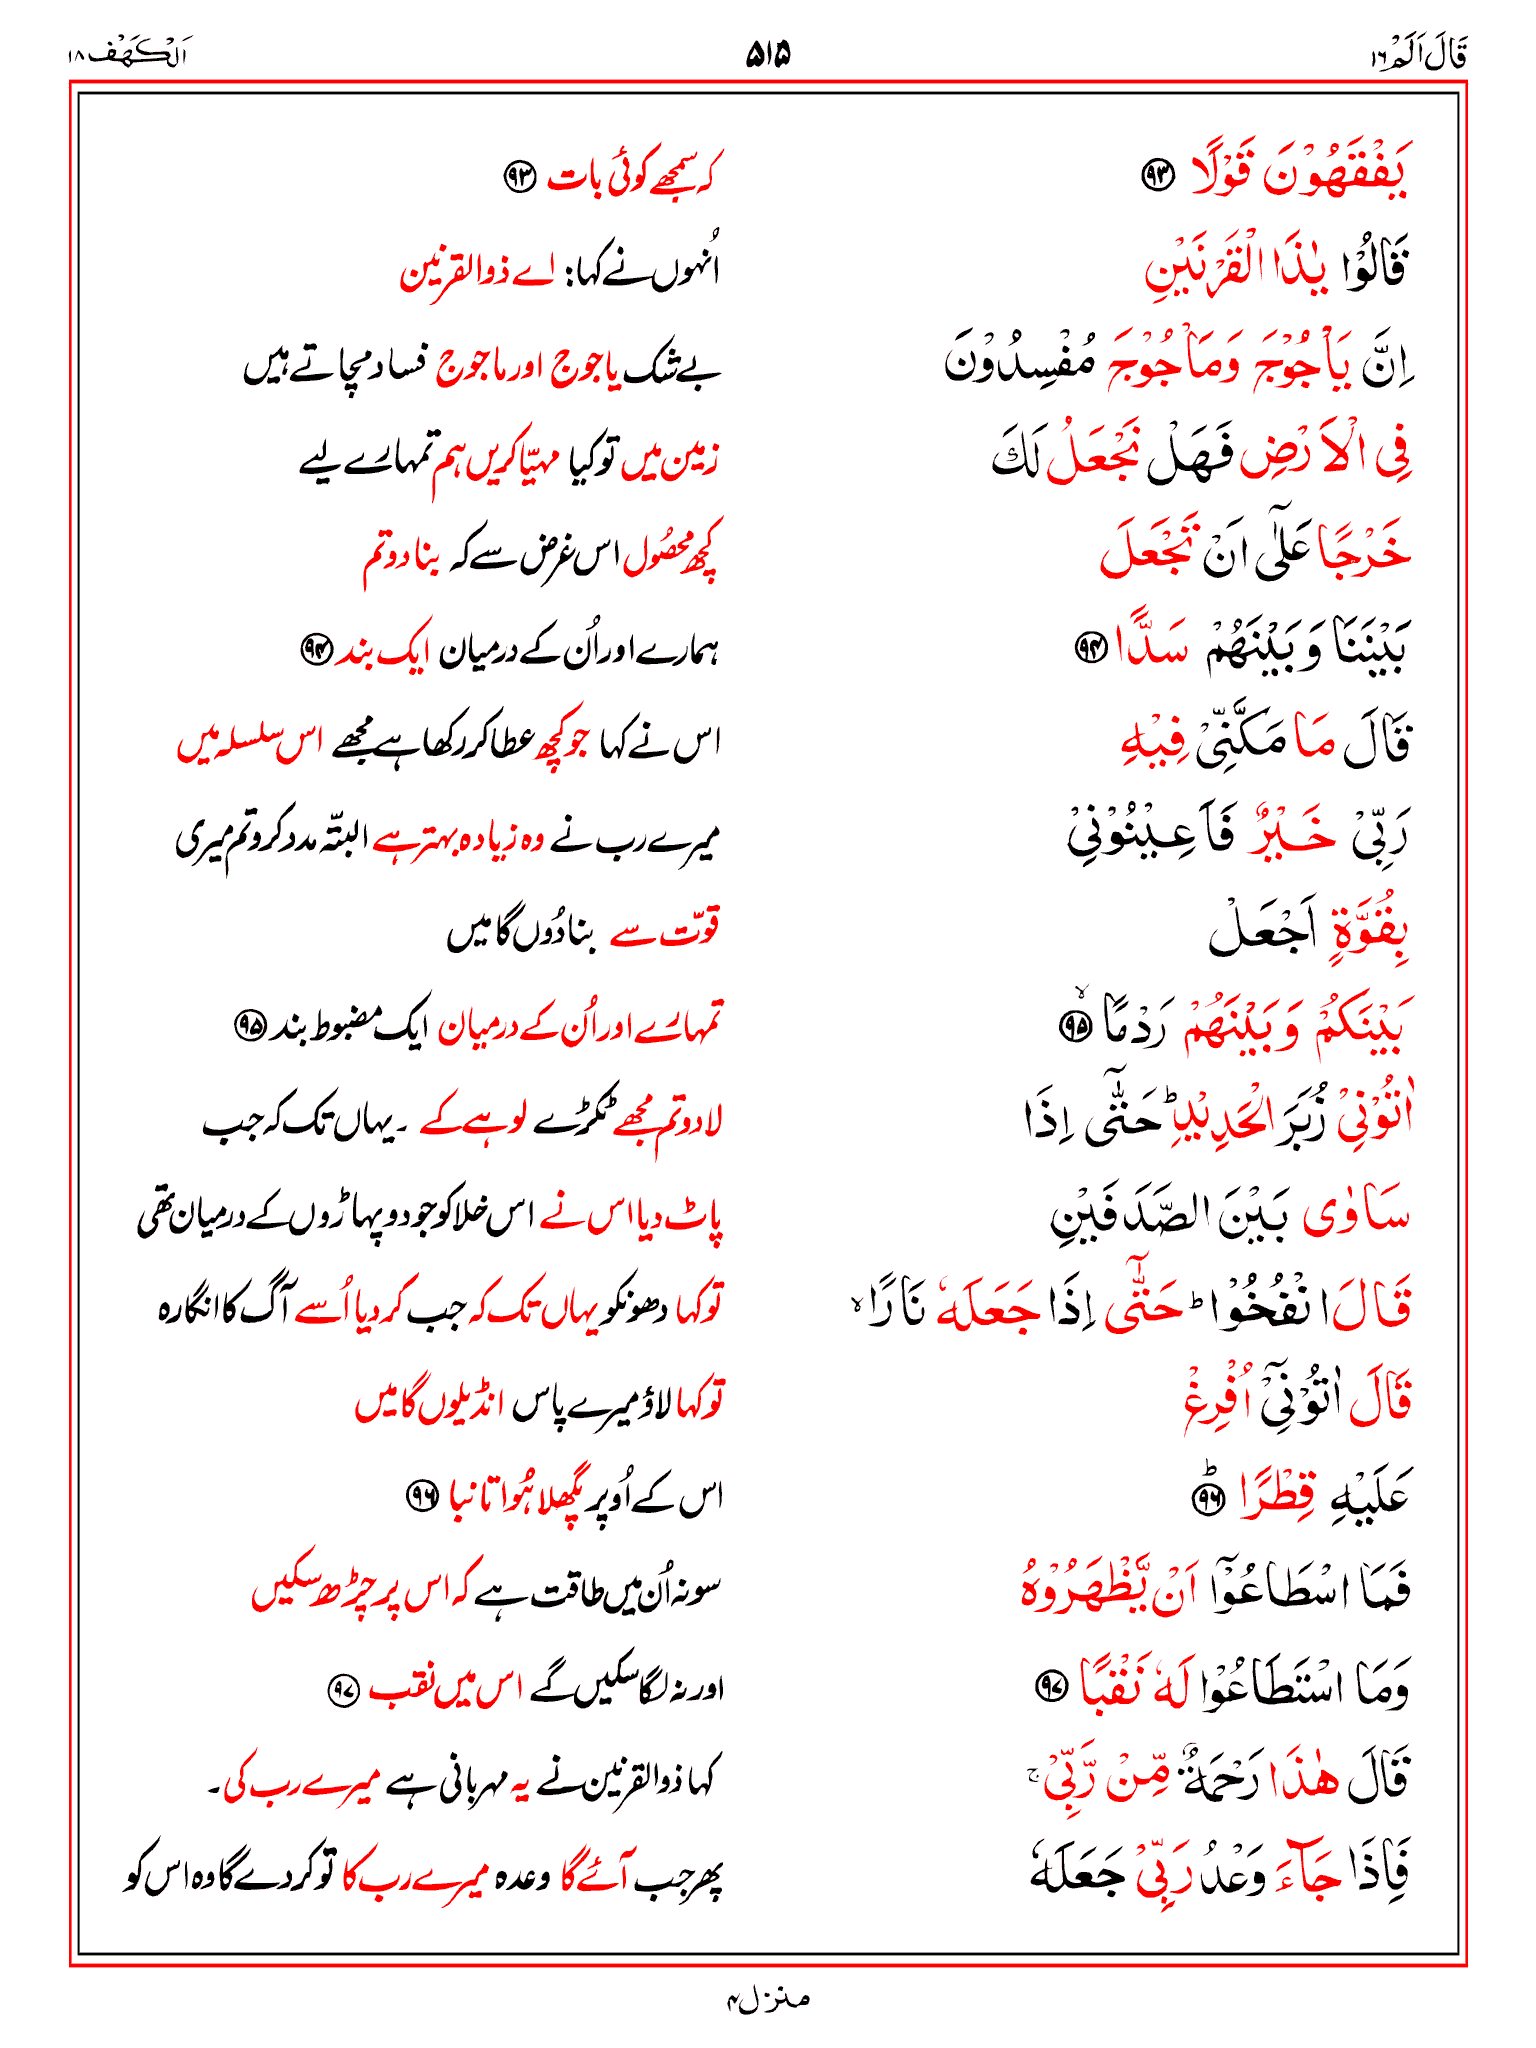 قَالَ اَلَمْ ١٦ ۵۱۵ اَلْكَهْف ١٨
يَفْقَهُوْنَ قَوْلًا ۹۳ کہ سمجھے کوئی بات ۹۳
قَالُوْا يٰذَا الْقَرْنَيْنِ اُنہوں نے کہا: اے ذوالقرنین
اِنَّ يَاْجُوْجَ وَمَاْجُوْجَ مُفْسِدُوْنَ بے شک یاجوج اور ماجوج فساد مچاتے ہیں
فِى الْاَرْضِ فَهَلْ نَجْعَلُ لَكَ زمین میں تو کیا مہیّا کریں ہم تمہارے لیے
خَرْجًا عَلٰٓى اَنْ تَجْعَلَ کچھ محصُول اس غرض سے کہ بنا دو تم
بَيْنَنَا وَبَيْنَهُمْ سَدًّا ۹۴ ہمارے اور اُن کے درمیان ایک بند ۹۴
قَالَ مَا مَكَّنِّىْ فِيْهِ اس نے کہا جو کچھ عطا کر رکھا ہے مجھے اس سلسلہ میں
رَبِّىْ خَيْرٌ فَاَعِيْنُوْنِىْ میرے رب نے وہ زیادہ بہتر ہے البتّہ مدد کرو تم میری
بِقُوَّةٍ اَجْعَلْ قوّت سے بنا دُوں گا میں
بَيْنَكُمْ وَبَيْنَهُمْ رَدْمًا ۙ ۹۵ تمہارے اور اُن کے درمیان ایک مضبوط بند ۹۵
اٰتُوْنِىْ زُبَرَ الْحَدِيْدِ ؕ حَتّٰٓى اِذَا لا دو تم مجھے ٹکڑے لوہے کے ۔ یہاں تک کہ جب
سَاوٰى بَيْنَ الصَّدَفَيْنِ پاٹ دیا اس نے اس خلا کو جو دو پہاڑوں کے درمیان تھی
قَالَ انْفُخُوْا ؕ حَتّٰٓى اِذَا جَعَلَهٗ نَارًا ۙ تو کہا دھونکو یہاں تک کہ جب کر دیا اُسے آگ کا انگارہ
قَالَ اٰتُوْنِىْٓ اُفْرِغْ تو کہا لاؤ میرے پاس انڈیلوں گا میں
عَلَيْهِ قِطْرًا ؕ ۹۶ اس کے اُوپر پگھلا ہُوا تانبا ۹۶
فَمَا اسْطَاعُوْٓا اَنْ يَّظْهَرُوْهُ سو نہ اُن میں طاقت ہے کہ اس پر چڑھ سکیں
وَمَا اسْتَطَاعُوْا لَهٗ نَقْبًا ۹۷ اور نہ لگا سکیں گے اس میں نقب ۹۷
قَالَ هٰذَا رَحْمَةٌ مِّنْ رَّبِّىْ ۚ کہا ذوالقرنین نے یہ مہربانی ہے میرے رب کی ۔
فَاِذَا جَآءَ وَعْدُ رَبِّىْ جَعَلَهٗ پھر جب آئے گا وعدہ میرے رب کا تو کر دے گا وہ اس کو
منزل ۴